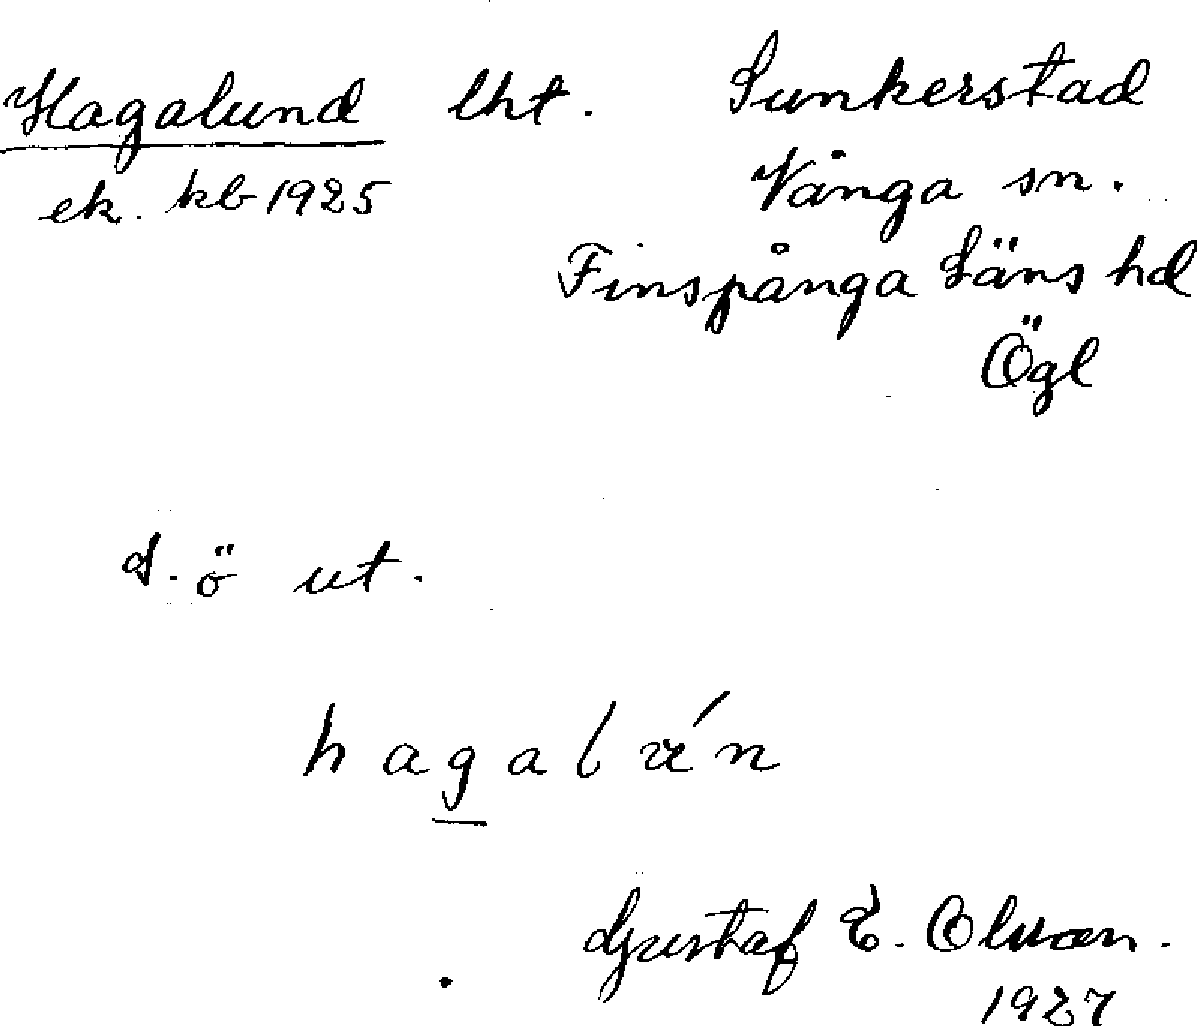 Hagalund lht. Sunkerstad
ek. kb 1925 Vånga sn.
Finspånga Läns hd
Ögl
d. ö ut.
Gustaf E. Olsson.
1927